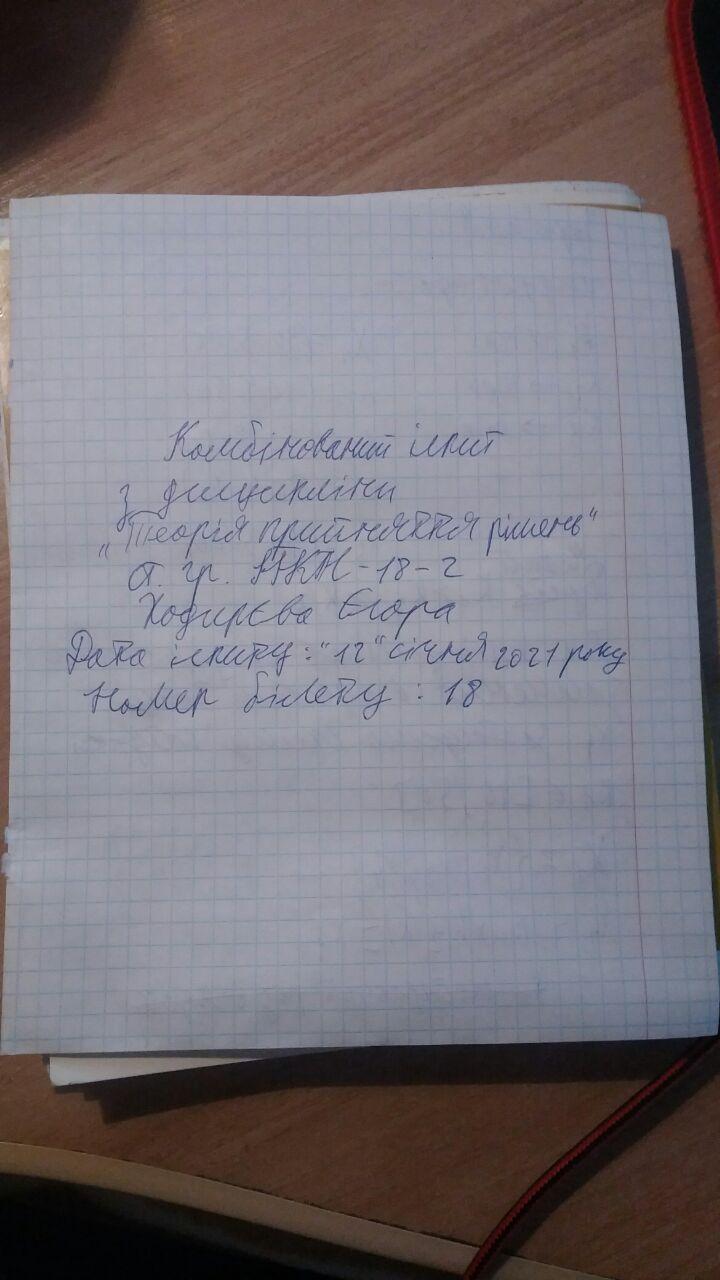 Комбінований іспит
з дисципліни
"Теорія прийняття рішень"
ст. гр. ІТКН-18-2
Ходирєва Єгора
Дата іспиту: "12" січня 2021 року
Номер білету : 18